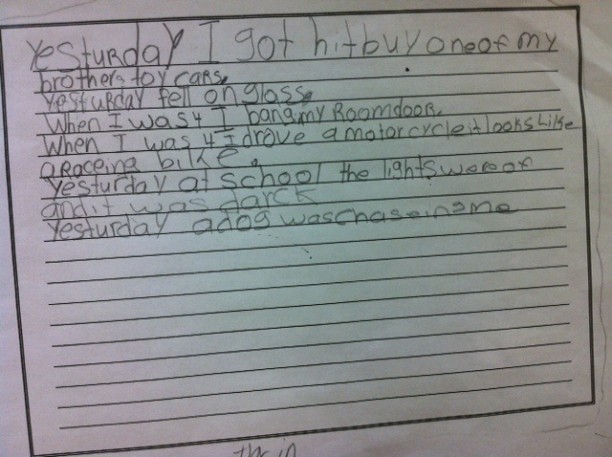 Yesturday I got hit buy one of my
brothers toy cars.
Yesturday fell on glass.
When I was 4 I bang my Room door.
When I was 4 I drove a motorcycle it looks like
a raceing bike.
Yesturday at school the lights were of
and it was darck
Yesturday a dog was chaseing me